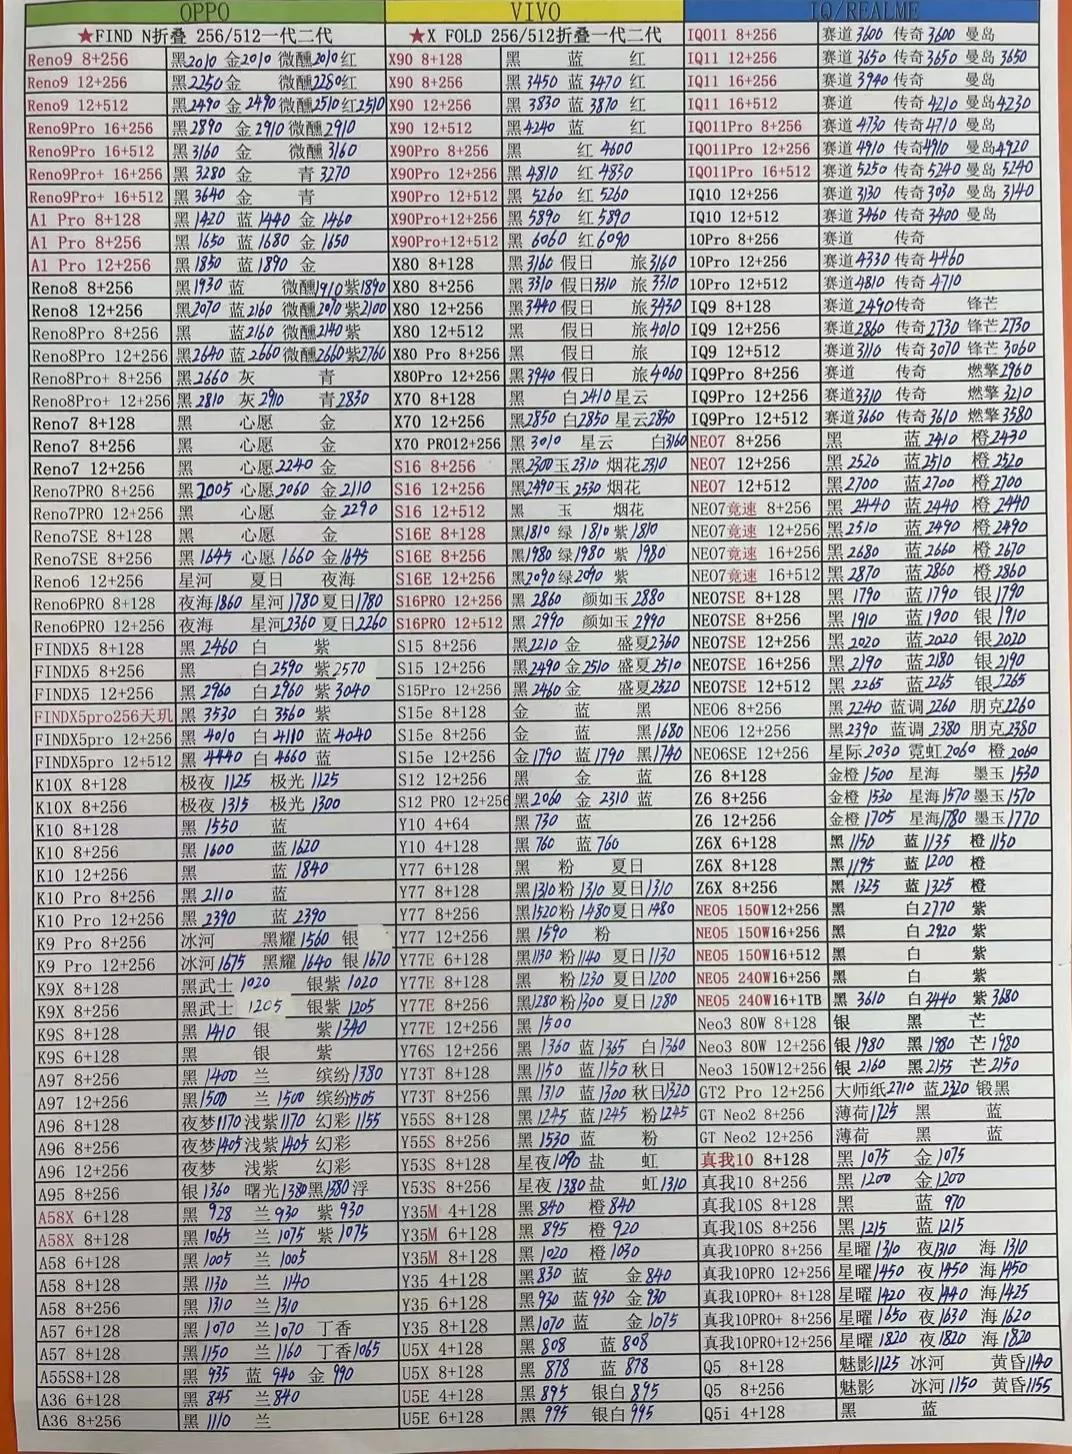 OPPO
★FIND N折叠 256/512一代二代
Reno9 8+256 黑2010 金2010 微醺2010 红
Reno9 12+256 黑2250 金 微醺2280 红
Reno9 12+512 黑2490 金2490 微醺2510 红2510
Reno9Pro 16+256 黑2890 金2910 微醺2910
Reno9Pro 16+512 黑3160 金 微醺3160
Reno9Pro+ 16+256 黑3280 金 青3270
Reno9Pro+ 16+512 黑3640 金 青
A1 Pro 8+128 黑1420 蓝1440 金1460
A1 Pro 8+256 黑1650 蓝1680 金1650
A1 Pro 12+256 黑1850 蓝1890 金
Reno8 8+256 黑1930 蓝 微醺1910 紫1890
Reno8 12+256 黑2070 蓝2160 微醺2070 紫2100
Reno8Pro 8+256 黑 蓝2160 微醺2140 紫
Reno8Pro 12+256 黑2640 蓝2660 微醺2660 紫2760
Reno8Pro+ 8+256 黑2660 灰 青
Reno8Pro+ 12+256 黑2810 灰2910 青2830
Reno7 8+128 黑 心愿 金
Reno7 8+256 黑 心愿 金
Reno7 12+256 黑 心愿2240 金
Reno7PRO 8+256 黑2005 心愿2060 金2110
Reno7PRO 12+256 黑 心愿 金2290
Reno7SE 8+128 黑 心愿 金
Reno7SE 8+256 黑1645 心愿1660 金1645
Reno6 12+256 星河 夏日 夜海
Reno6PRO 8+128 夜海1860 星河1780 夏日1780
Reno6PRO 12+256 夜海 星河2360 夏日2260
FINDX5 8+128 黑2460 白 紫
FINDX5 8+256 黑 白2590 紫2570
FINDX5 12+256 黑2960 白2960 紫3040
FINDX5pro256天玑 黑3530 白3560 紫
FINDX5pro 12+256 黑4010 白4110 蓝4040
FINDX5pro 12+512 黑4440 白4660 蓝
K10X 8+128 极夜1125 极光1125
K10X 8+256 极夜1315 极光1300
K10 8+128 黑1550 蓝
K10 8+256 黑1600 蓝1620
K10 12+256 黑 蓝1840
K10 Pro 8+256 黑2110 蓝
K10 Pro 12+256 黑2390 蓝2390
K9 Pro 8+256 冰河 黑耀1560 银
K9 Pro 12+256 冰河1675 黑耀1640 银1670
K9X 8+128 黑武士1020 银紫1020
K9X 8+256 黑武士1205 银紫1205
K9S 8+128 黑1410 银 紫1340
K9S 6+128 黑 银 紫
A97 8+256 黑1400 兰 缤纷1380
A97 12+256 黑1500 兰1500 缤纷1505
A96 8+128 夜梦1170 浅紫1170 幻彩1155
A96 8+256 夜梦1405 浅紫1405 幻彩
A96 12+256 夜梦 浅紫 幻彩
A95 8+256 银1360 曙光1380 黑1380 浮
A58X 6+128 黑928 兰930 紫930
A58X 8+128 黑1065 兰1075 紫1075
A58 6+128 黑1005 兰1005
A58 8+128 黑1130 兰1140
A58 8+256 黑1310 兰1310
A57 6+128 黑1070 兰1070 丁香
A57 8+128 黑1150 兰1160 丁香1065
A55S8+128 黑935 蓝940 金990
A36 6+128 黑845 兰840
A36 8+256 黑1110 兰
VIVO
★X FOLD 256/512折叠一代二代
X90 8+128 黑 蓝 红
X90 8+256 黑3450 蓝3470 红
X90 12+256 黑3830 蓝3870 红
X90 12+512 黑4240 蓝 红
X90Pro 8+256 黑 红4600
X90Pro 12+256 黑4810 红4830
X90Pro 12+512 黑5260 红5260
X90Pro+12+256 黑5890 红5890
X90Pro+12+512 黑6060 红6090
X80 8+128 黑3160 假日 旅3160
X80 8+256 黑3310 假日3310 旅3310
X80 12+256 黑3440 假日 旅3430
X80 12+512 黑 假日 旅4010
X80 Pro 8+256 黑 假日 旅
X80Pro 12+256 黑3940 假日 旅4060
X70 8+128 黑 白2410 星云
X70 12+256 黑2850 白2850 星云2850
X70 PRO12+256 黑3010 星云 白3160
S16 8+256 黑2300 玉2310 烟花2310
S16 12+256 黑2490 玉2530 烟花
S16 12+512 黑 玉 烟花
S16E 8+128 黑1810 绿1810 紫1810
S16E 8+256 黑1980 绿1980 紫1980
S16E 12+256 黑2090 绿2090 紫
S16PRO 12+256 黑2860 颜如玉2880
S16PRO 12+512 黑2990 颜如玉2990
S15 8+256 黑2210 金 盛夏2360
S15 12+256 黑2490 金2510 盛夏2510
S15Pro 12+256 黑2460 金 盛夏2520
S15e 8+128 金 蓝 黑
S15e 8+256 金 蓝 黑1680
S15e 12+256 金1790 蓝1790 黑1740
S12 12+256 黑 金 蓝
S12 PRO 12+256 黑2060 金2310 蓝
Y10 4+64 黑730 蓝
Y10 4+128 黑760 蓝760
Y77 6+128 黑 粉 夏日
Y77 8+128 黑1310 粉1310 夏日1310
Y77 8+256 黑1520 粉1480 夏日1480
Y77 12+256 黑1590 粉
Y77E 6+128 黑1130 粉1140 夏日1130
Y77E 8+128 黑 粉1230 夏日1200
Y77E 8+256 黑1280 粉1300 夏日1280
Y77E 12+256 黑1500
Y76S 12+256 黑1360 蓝1365 白1360
Y73T 8+128 黑1150 蓝1150 秋日
Y73T 8+256 黑1310 蓝1300 秋日1320
Y55S 8+128 黑1245 蓝1245 粉1245
Y55S 8+256 黑1530 蓝 粉
Y53S 8+128 星夜1090 盐 虹
Y53S 8+256 星夜1380 盐 虹1310
Y35M 4+128 黑840 橙840
Y35M 6+128 黑895 橙920
Y35M 8+128 黑1020 橙1030
Y35 4+128 黑830 蓝 金840
Y35 6+128 黑930 蓝930 金930
Y35 8+128 黑1070 蓝 金1075
U5X 4+128 黑808 蓝808
U5X 8+128 黑878 蓝878
U5E 4+128 黑895 银白895
U5E 6+128 黑995 银白995
IQ/REALME
IQ011 8+256 赛道3600 传奇3600 曼岛
IQ11 12+256 赛道3650 传奇3650 曼岛3650
IQ11 16+256 赛道3940 传奇 曼岛
IQ11 16+512 赛道 传奇4210 曼岛4230
IQ011Pro 8+256 赛道4730 传奇4710 曼岛
IQ011Pro 12+256 赛道4910 传奇4910 曼岛4920
IQ011Pro 16+512 赛道5250 传奇5240 曼岛5240
IQ10 12+256 赛道3130 传奇3030 曼岛3140
IQ10 12+512 赛道3460 传奇3400 曼岛
10Pro 8+256 赛道 传奇
10Pro 12+256 赛道4330 传奇4460
10Pro 12+512 赛道4810 传奇4710
IQ9 8+128 赛道2490 传奇 锋芒
IQ9 12+256 赛道2860 传奇2730 锋芒2730
IQ9 12+512 赛道3110 传奇3070 锋芒3060
IQ9Pro 8+256 赛道 传奇 燃擎2960
IQ9Pro 12+256 赛道3310 传奇 燃擎3210
IQ9Pro 12+512 赛道3660 传奇3610 燃擎3580
NEO7 8+256 黑 蓝2410 橙2430
NEO7 12+256 黑2520 蓝2510 橙2520
NEO7 12+512 黑2700 蓝2700 橙2700
NEO7竞速 8+256 黑2440 蓝2440 橙2440
NEO7竞速 12+256 黑2510 蓝2490 橙2490
NEO7竞速 16+256 黑2680 蓝2660 橙2670
NEO7竞速 16+512 黑2870 蓝2860 橙2860
NEO7SE 8+128 黑1790 蓝1790 银1790
NEO7SE 8+256 黑1910 蓝1900 银1910
NEO7SE 12+256 黑2020 蓝2020 银2020
NEO7SE 16+256 黑2190 蓝2180 银2190
NEO7SE 12+512 黑2265 蓝2265 银2265
NEO6 8+256 黑2240 蓝调2260 朋克2260
NEO6 12+256 黑2390 蓝调2380 朋克2380
NEO6SE 12+256 星际2030 霓虹2060 橙2060
Z6 8+128 金橙1500 星海 墨玉1530
Z6 8+256 金橙1530 星海1570 墨玉1570
Z6 12+256 金橙1705 星海1780 墨玉1770
Z6X 6+128 黑1150 蓝1135 橙1150
Z6X 8+128 黑1195 蓝1200 橙
Z6X 8+256 黑1325 蓝1325 橙
NEO5 150W12+256 黑 白2770 紫
NEO5 150W16+256 黑 白2920 紫
NEO5 150W16+512 黑 白 紫
NEO5 240W16+256 黑 白 紫
NEO5 240W16+1TB 黑3610 白3440 紫3680
Neo3 80W 8+128 银 黑 芒
Neo3 80W 12+256 银1980 黑1980 芒1980
Neo3 150W12+256 银2160 黑2155 芒2150
GT2 Pro 12+256 大师纸2710 蓝2320 锻黑
GT Neo2 8+256 薄荷1725 黑 蓝
GT Neo2 12+256 薄荷 黑 蓝
真我10 8+128 黑1075 金1075
真我10 8+256 黑1200 金1200
真我10S 8+128 黑 蓝970
真我10S 8+256 黑1215 蓝1215
真我10PRO 8+256 星曜1310 夜1310 海1310
真我10PRO 12+256 星曜1450 夜1450 海1450
真我10PRO+ 8+128 星曜1420 夜1440 海1425
真我10PRO+ 8+256 星曜1650 夜1630 海1620
真我10PRO+12+256 星曜1820 夜1820 海1820
Q5 8+128 魅影1125 冰河 黄昏1140
Q5 8+256 魅影 冰河1150 黄昏1155
Q5i 4+128 黑 蓝